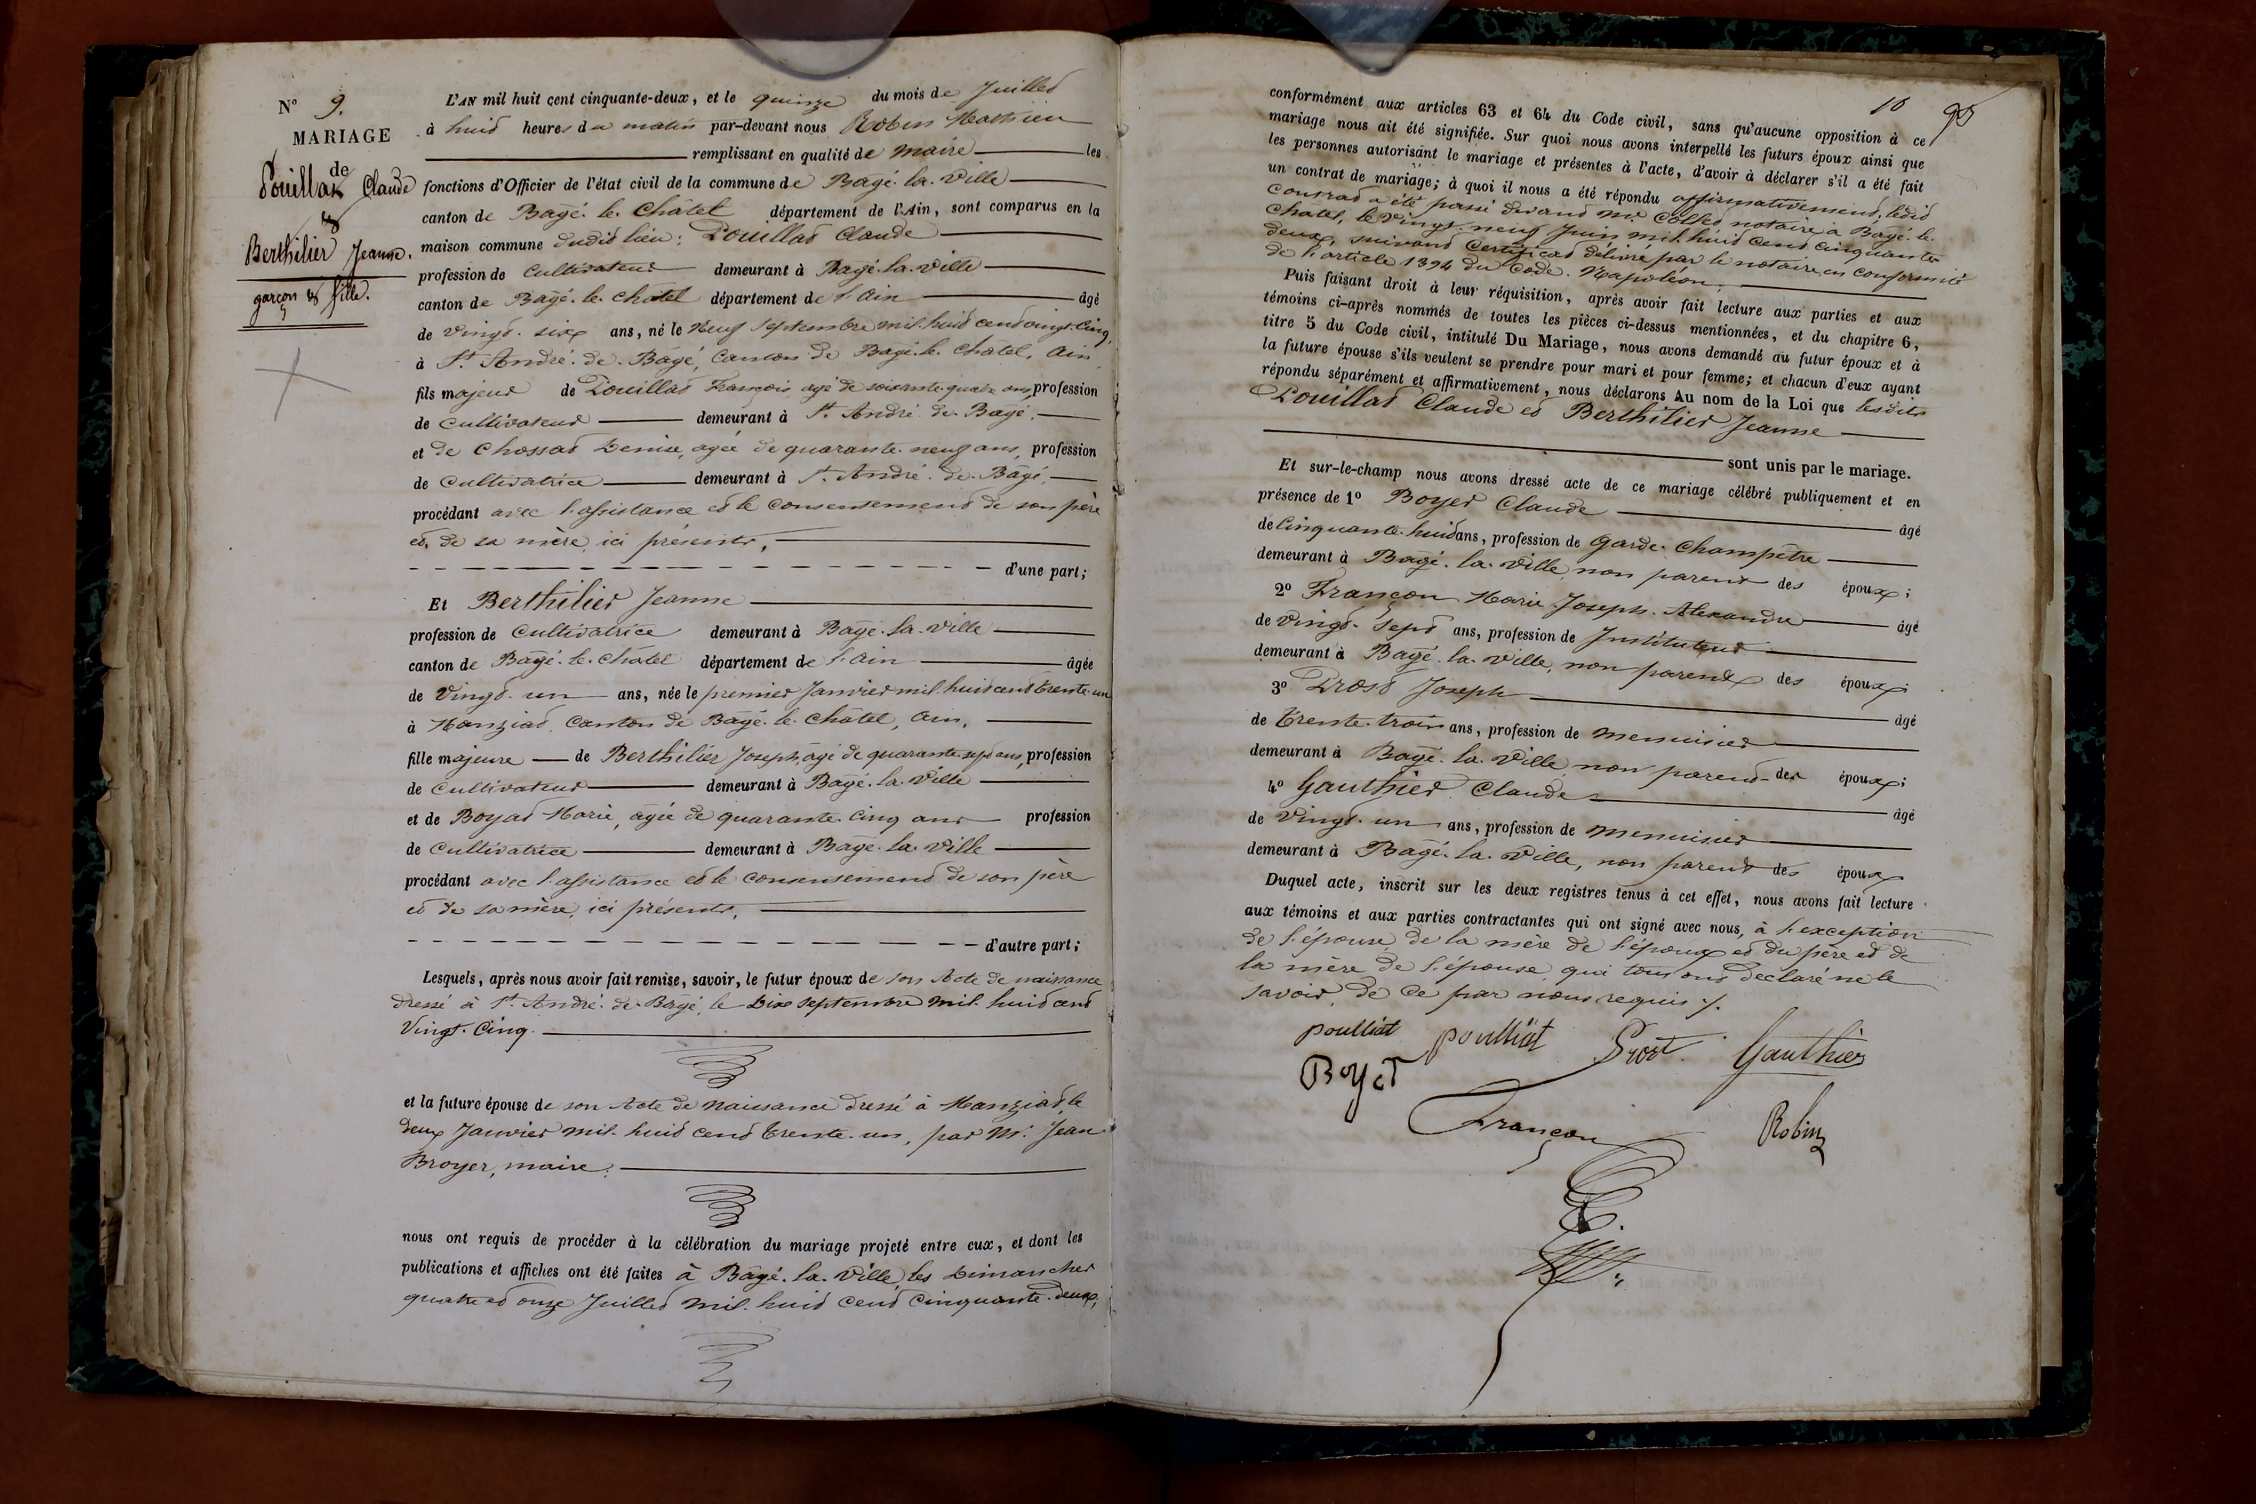 N° 9.
MARIAGE
de
Pouillat Claude
&
Berthilier Jeanne.
garçon & fille.
L'AN mil huit cent cinquante-deux, et le quinze du mois de Juillet
à huit heures du matin par-devant nous Robin Mathieu
remplissant en qualité de maire les
fonctions d'Officier de l'état civil de la commune de Bagé-la-Ville
canton de Bagé-le-Châtel département de l'Ain, sont comparus en la
maison commune dudit lieu: Pouillat Claude
profession de Cultivateur demeurant à Bagé-la-Ville
canton de Bagé-le-Châtel département de l'Ain âgé
de Vingt-six ans, né le Neuf Septembre mil-huit cent vingt-cinq
à St André-de-Bagé, Canton de Bagé-le-Châtel, Ain
fils majeur de Pouillat François, agé de soixante-quatre ans, profession
de Cultivateur demeurant à St André-de-Bagé,
et de Chossat Denise, agée de quarante-neuf ans, profession
de Cultivatrice demeurant à St André-de-Bagé,
procédant avec l'assistance et le Consentement de son père
et de sa mère, ici présents,
d'une part;
Et Berthilier Jeanne
profession de Cultivatrice demeurant à Bagé-la-Ville
canton de Bagé-le-Châtel département de l'Ain âgée
de Vingt-un ans, née le premier Janvier mil-huit cent trente-un
à Manziat, Canton de Bagé-le-Châtel, Ain,
fille majeure de Berthilier Joseph, âgé de quarante-sept ans, profession
de Cultivateur demeurant à Bagé-la-Ville
et de Boyat Marie, âgée de quarante-cinq ans profession
de Cultivatrice demeurant à Bagé-la-Ville
procédant avec l'assistance et le Consentement de son père
et de sa mère, ici présents,
d'autre part;
Lesquels, après nous avoir fait remise, savoir, le futur époux de son Acte de naissance
dressé à St André-de-Bagé, le Dix septembre mil-huit cent
Vingt-Cinq.
et la future épouse de son Acte de Naissance dressé à Manziat, le
deux Janvier mil-huit cent trente-un, par Mr Jean
Broyer, maire.
nous ont requis de procéder à la célébration du mariage projeté entre eux, et dont les
publications et affiches ont été faites à Bagé-la-Ville, les Dimanches
quatre et onze Juillet mil-huit cent Cinquante-deux,
10 95
conformément aux articles 63 et 64 du Code civil, sans qu'aucune opposition à ce
mariage nous ait été signifiée. Sur quoi nous avons interpellé les futurs époux ainsi que
les personnes autorisant le mariage et présentes à l'acte, d'avoir à déclarer s'il a été fait
un contrat de mariage; à quoi il nous a été répondu affirmativement, ledit
Contrat a été passé devant Mr notaire à Bagé-le-
Châtel, le Vingt-neuf Juin mil-huit cent Cinquante-
deux, suivant Certificat délivré par le notaire en Conformité
de l'article 1394 du Code Napoléon.
Puis faisant droit à leur réquisition, après avoir fait lecture aux parties et aux
témoins ci-après nommés de toutes les pièces ci-dessus mentionnées, et du chapitre 6,
titre 5 du Code civil, intitulé Du Mariage, nous avons demandé au futur époux et à
la future épouse s'ils veulent se prendre pour mari et pour femme; et chacun d'eux ayant
répondu séparément et affirmativement, nous déclarons Au nom de la Loi que lesdits
Pouillat Claude et Berthilier Jeanne
sont unis par le mariage.
Et sur-le-champ nous avons dressé acte de ce mariage célébré publiquement et en
présence de 1° Boyer Claude âgé
de Cinquante-huit ans, profession de Garde-Champêtre
demeurant à Bagé-la-Ville, non parent des époux;
2° Françon Marie Joseph-Alexandre âgé
de Vingt-Sept ans, profession de Instituteur
demeurant à Bagé-la-Ville, non parent des époux;
3° Prost Joseph âgé
de Trente-trois ans, profession de Menuisier
demeurant à Bagé-la-Ville, non parent des époux;
4° Gauthier Claude âgé
de Vingt-un ans, profession de Menuisier
demeurant à Bagé-la-Ville, non parent des époux
Duquel acte, inscrit sur les deux registres tenus à cet effet, nous avons fait lecture
aux témoins et aux parties contractantes qui ont signé avec nous, à l'exception
de l'épouse, de la mère de l'époux et du père et de
la mère de l'épouse, qui tous ont déclaré ne le
savoir, de ce par nous requis ./.
poulliat poulliat Prost Gauthier
Boyer
Françon Robin